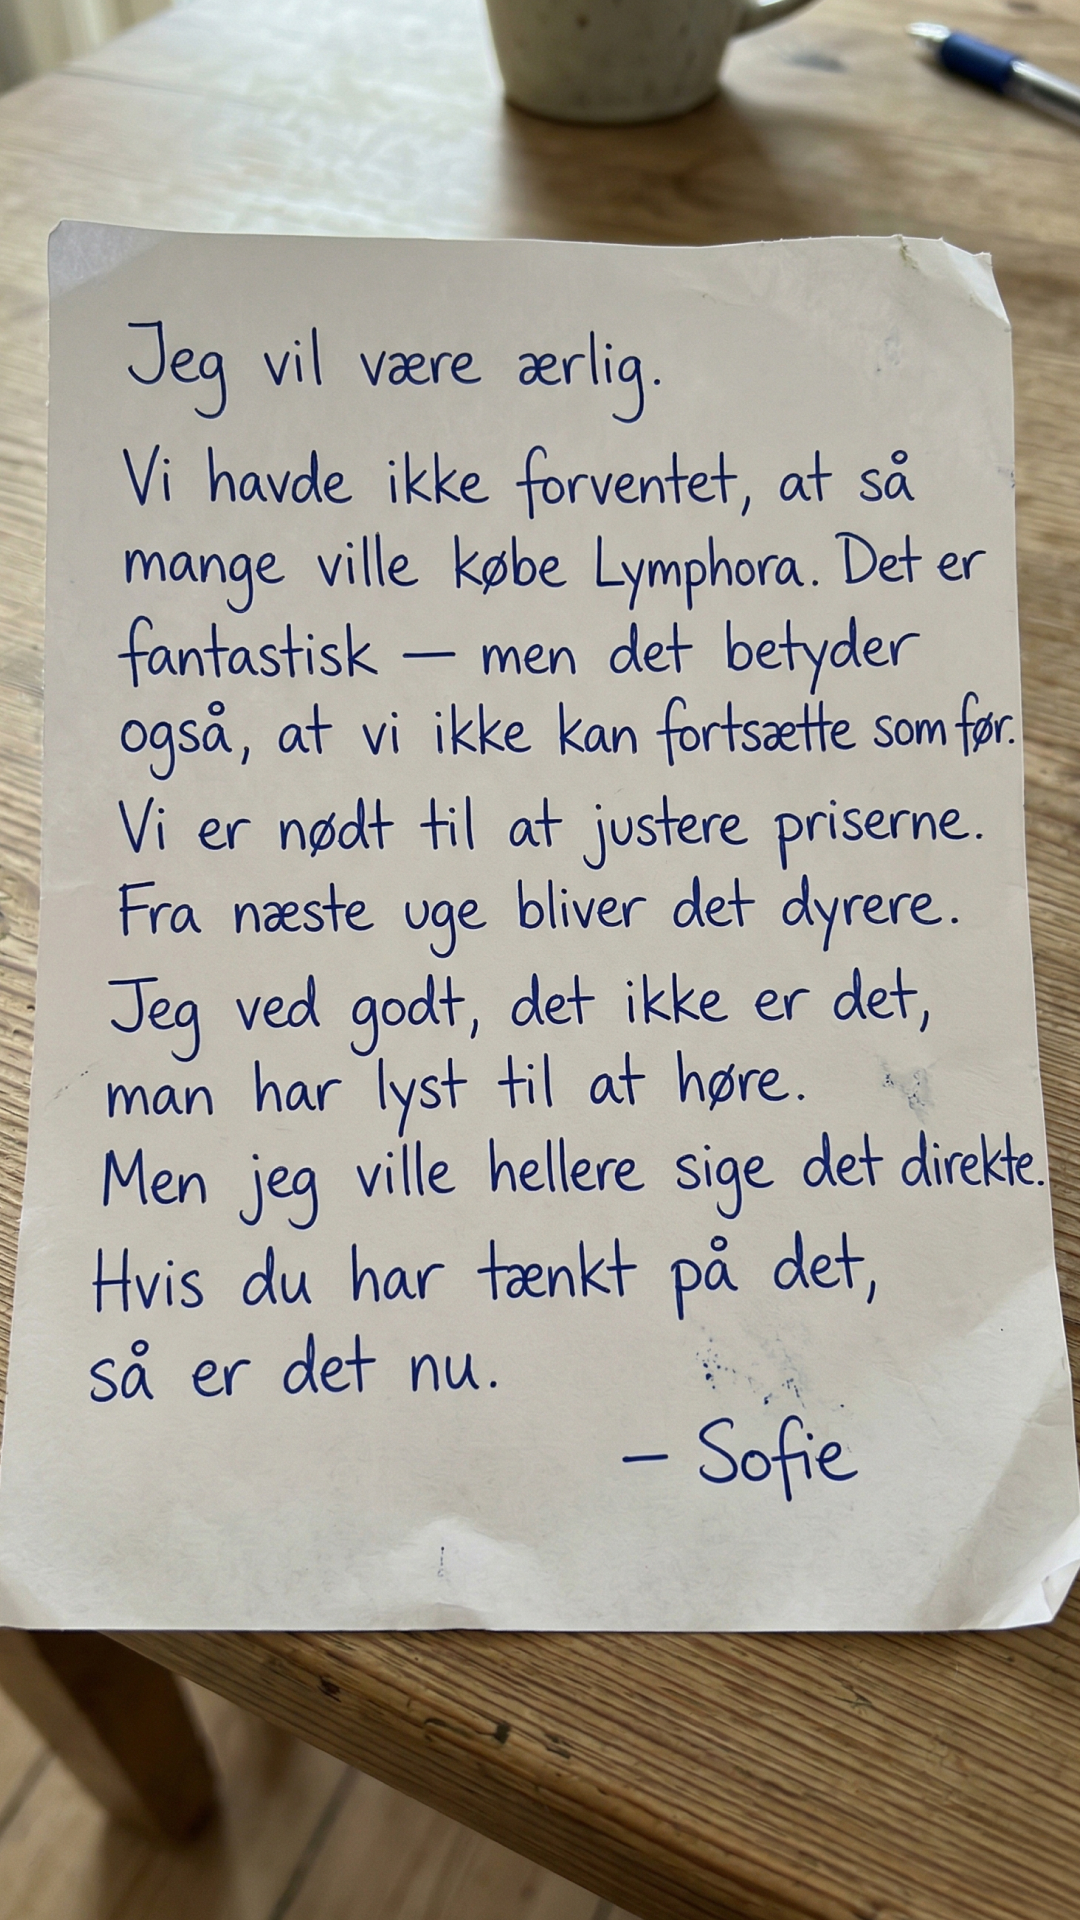 Jeg vil være ærlig.
Vi havde ikke forventet, at så
mange ville købe Lymphora. Det er
fantastisk — men det betyder
også, at vi ikke kan fortsætte som før.
Vi er nødt til at justere priserne.
Fra næste uge bliver det dyrere.
Jeg ved godt, det ikke er det,
man har lyst til at høre.
Men jeg ville hellere sige det direkte.
Hvis du har tænkt på det,
så er det nu.
– Sofie